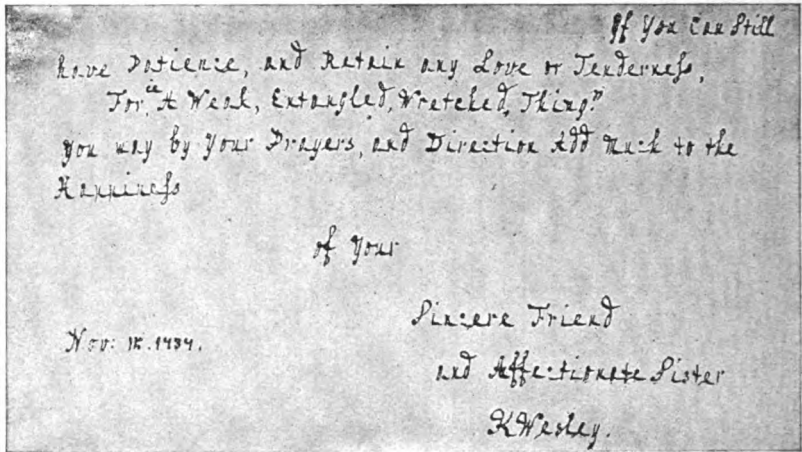 If You Can Still
have Patience, and Retain any Love or Tenderness,
For, "A Weak, Entangled, Wretched, Thing."
You may by Your Prayers, and Direction Add Much to the
Happiness
of Your
Sincere Friend
Nov: 1734.
and Affectionate Sister
KWesley.